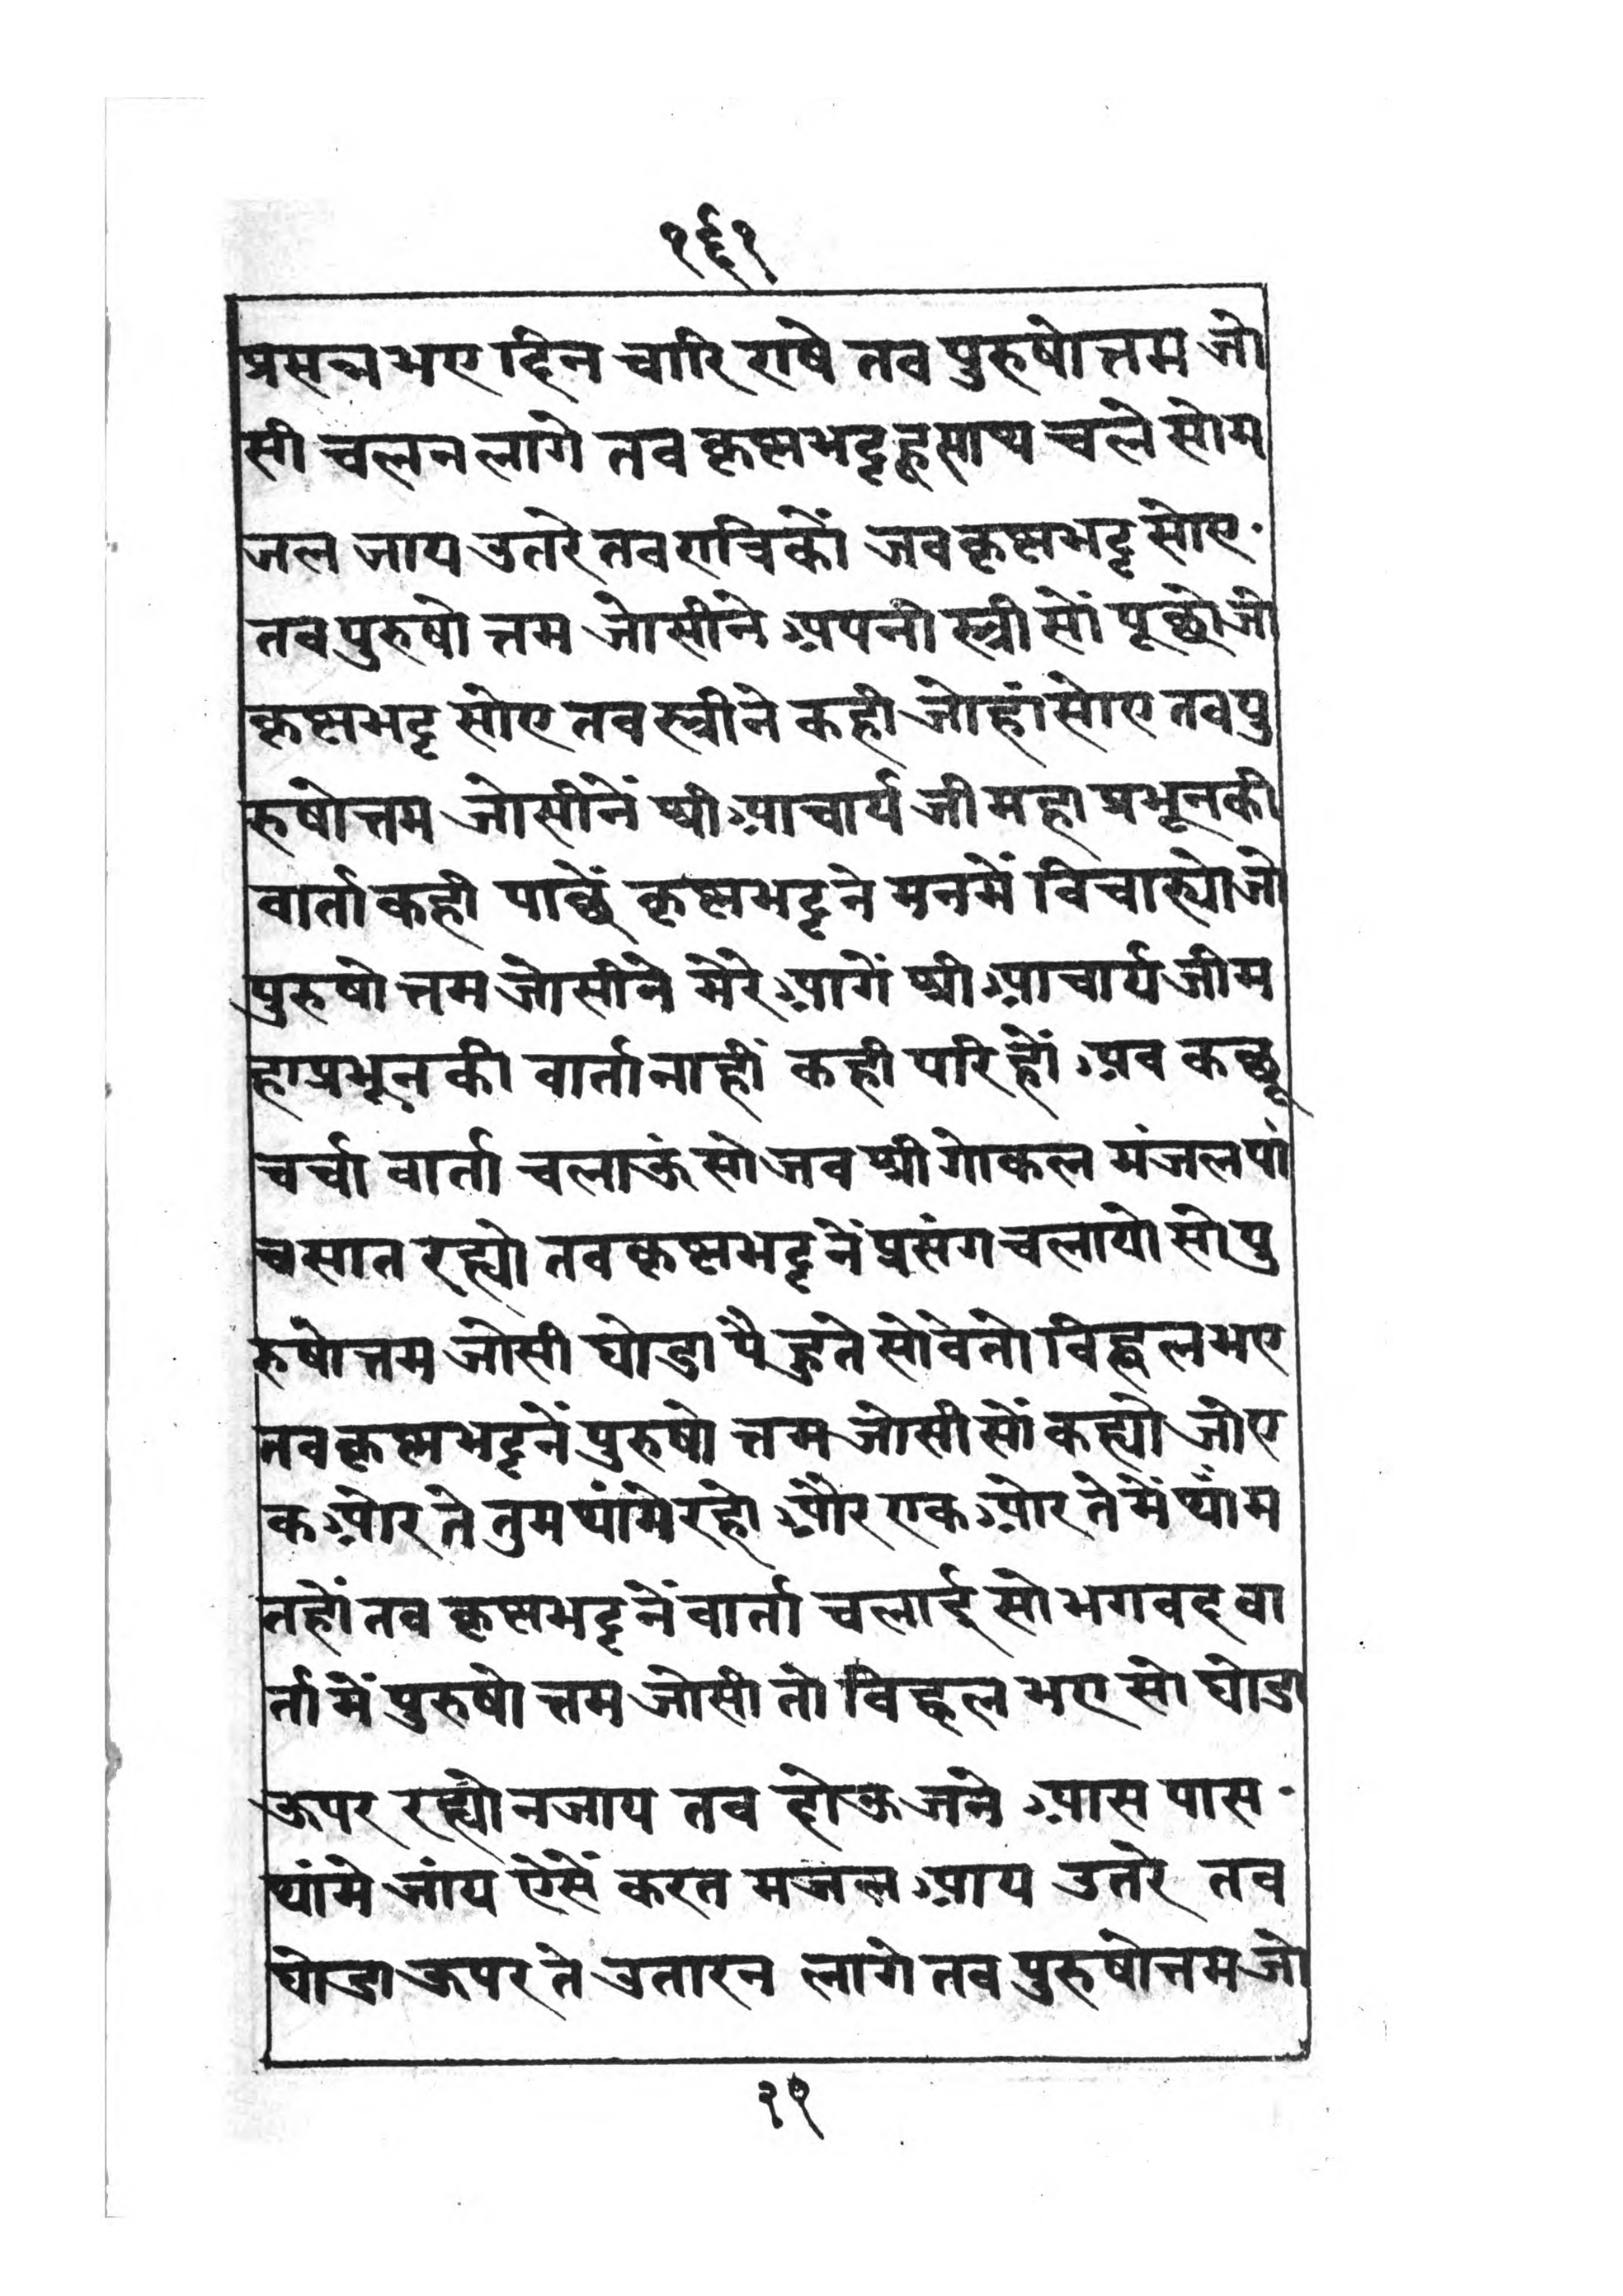 १६१
प्रसन्न भए दिन चारि राषे तव पुरुषोत्तम जो
सी चलन लागे तव कृष्णभट्ट हू साथ चले सो म
जल जाय उतरे तव रात्रिकों जव कृष्णभट्ट सोए
तव पुरुषोत्तम जोसीने अपनी स्त्री सों पूछो जो
कृष्णभट्ट सोए तव स्त्रीने कही जो हां सोए तव पु
रुषोत्तम जोसीनें श्री आचार्य जी महा प्रभूनकी
वार्ता कही पाछें कृष्णभट्टने मनमें विचार्‌यो जो
पुरुषोत्तम जोसीने मेरे आगें श्री आचार्य जी म
हाप्रभून की वार्ता नाहीं कही परि हों अव कछू
चर्चा वार्ता चलाऊं सो जव श्री गोकल मंजल पां
च सात रह्यो तव कृष्णभट्टनें प्रसंग चलायो सो पु
रुषोत्तम जोसी घोडा पै हुते सो वे तो विह्वल भए
तव कृष्णभट्टनें पुरुषोत्तम जोसी सों कह्यो जो ए
क ओर ते तुम थांमे रहो और एक ओर ते में थांम
तहों तव कृष्णभट्टनें वार्ता चलाई सो भगवद वा
र्ता में पुरुषोत्तम जोसी तो विह्वल भए सो घोडा
ऊपर रह्यो न जाय तव दोऊ जने आस पास
थांमे जांय ऐसें करत मजल आय उतरे तव
घोडा ऊपर ते उतारन लागे तव पुरुषोत्तम जो
२१